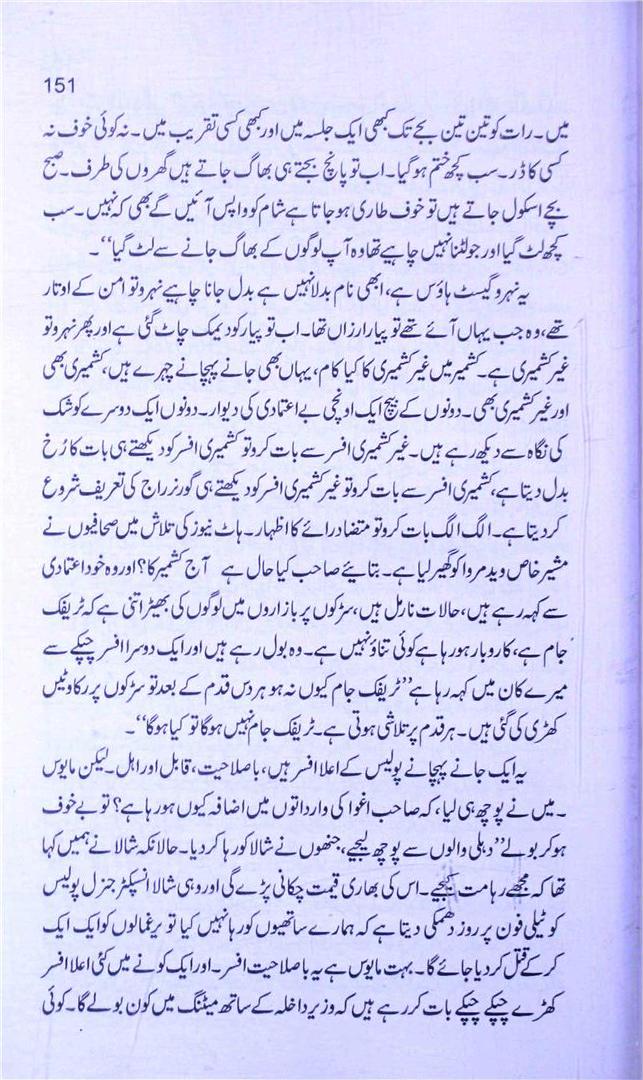 151
میں۔ رات کو تین تین بجے تک کبھی ایک جلسہ میں اور بھی کسی تقریب میں۔ نہ کوئی خوف نہ
کسی کا ڈر۔ سب کچھ ختم ہو گیا۔ اب تو پانچ بجتے ہی بھاگ جاتے ہیں گھروں کی طرف۔ صبح
بچے اسکول جاتے ہیں تو خوف طاری ہو جاتا ہے شام کو واپس آئیں گے بھی کہ نہیں۔ سب
کچھ لٹ گیا اور جو لٹنا نہیں چاہیے تھا وہ آپ لوگوں کے بھاگ جانے سے لٹ گیا‘‘۔
یہ نہرو گیسٹ ہاؤس ہے، ابھی نام بدلا نہیں ہے بدل جانا چاہیے نہرو تو امن کے اوتار
تھے، وہ جب یہاں آئے تھے تو پیار ارزاں تھا۔ اب تو پیار کو دیمک چاٹ گئی ہے اور پھر نہرو تو
غیر کشمیری ہے۔ کشمیر میں غیر کشمیری کا کیا کام، یہاں بھی جانے پہچانے چہرے ہیں، کشمیری بھی
اور غیر کشمیری بھی۔ دونوں کے بیچ ایک اونچی بے اعتمادی کی دیوار۔ دونوں ایک دوسرے کو شک
کی نگاہ سے دیکھ رہے ہیں۔ غیر کشمیری افسر سے بات کرو تو کشمیری افسر کو دیکھتے ہی بات کا رُخ
بدل دیتا ہے، کشمیری افسر سے بات کرو تو غیر کشمیری افسر کو دیکھتے ہی گورنر راج کی تعریف شروع
کر دیتا ہے۔ الگ الگ بات کرو تو متضاد رائے کا اظہار۔ ہاٹ نیوز کی تلاش میں صحافیوں نے
مشیر خاص وید مروا کو گھیر لیا ہے۔ بتایئے صاحب کیا حال ہے آج کشمیر کا؟ اور وہ خود اعتمادی
سے کہہ رہے ہیں، حالات نارمل ہیں، سڑکوں پر بازاروں میں لوگوں کی بھیڑ اتنی ہے کہ ٹریفک
جام ہے، کاروبار ہو رہا ہے کوئی تناؤ نہیں ہے۔ وہ بول رہے ہیں اور ایک دوسرا افسر چپکے سے
میرے کان میں کہہ رہا ہے ’’ٹریفک جام کیوں نہ ہو ہر دس قدم کے بعد تو سڑکوں پر رکاوٹیں
کھڑی کی گئی ہیں۔ ہر قدم پر تلاشی ہوتی ہے۔ ٹریفک جام نہیں ہوگا تو کیا ہوگا‘‘۔
یہ ایک جانے پہچانے پولیس کے اعلا افسر ہیں، باصلاحیت، قابل اور اہل۔ لیکن مایوس
۔ میں نے پوچھ ہی لیا، کہ صاحب اغوا کی وارداتوں میں اضافہ کیوں ہو رہا ہے؟ تو بے خوف
ہو کر بولے ’’دہلی والوں سے پوچھ لیجیے، جنھوں نے شالا کو رہا کر دیا۔ حالانکہ شالا نے ہمیں کہا
تھا کہ مجھے رہا مت کیجیے۔ اس کی بھاری قیمت چکانی پڑے گی اور وہی شالا انسپکٹر جنرل پولیس
کو ٹیلی فون پر روز دھمکی دیتا ہے کہ ہمارے ساتھیوں کو رہا نہیں کیا تو یرغمالوں کو ایک ایک
کر کے قتل کر دیا جائے گا۔ بہت مایوس ہے یہ باصلاحیت افسر۔ اور ایک کونے میں کئی اعلا افسر
کھڑے چپکے چپکے بات کر رہے ہیں کہ وزیر داخلہ کے ساتھ میٹنگ میں کون بولے گا۔ کوئی